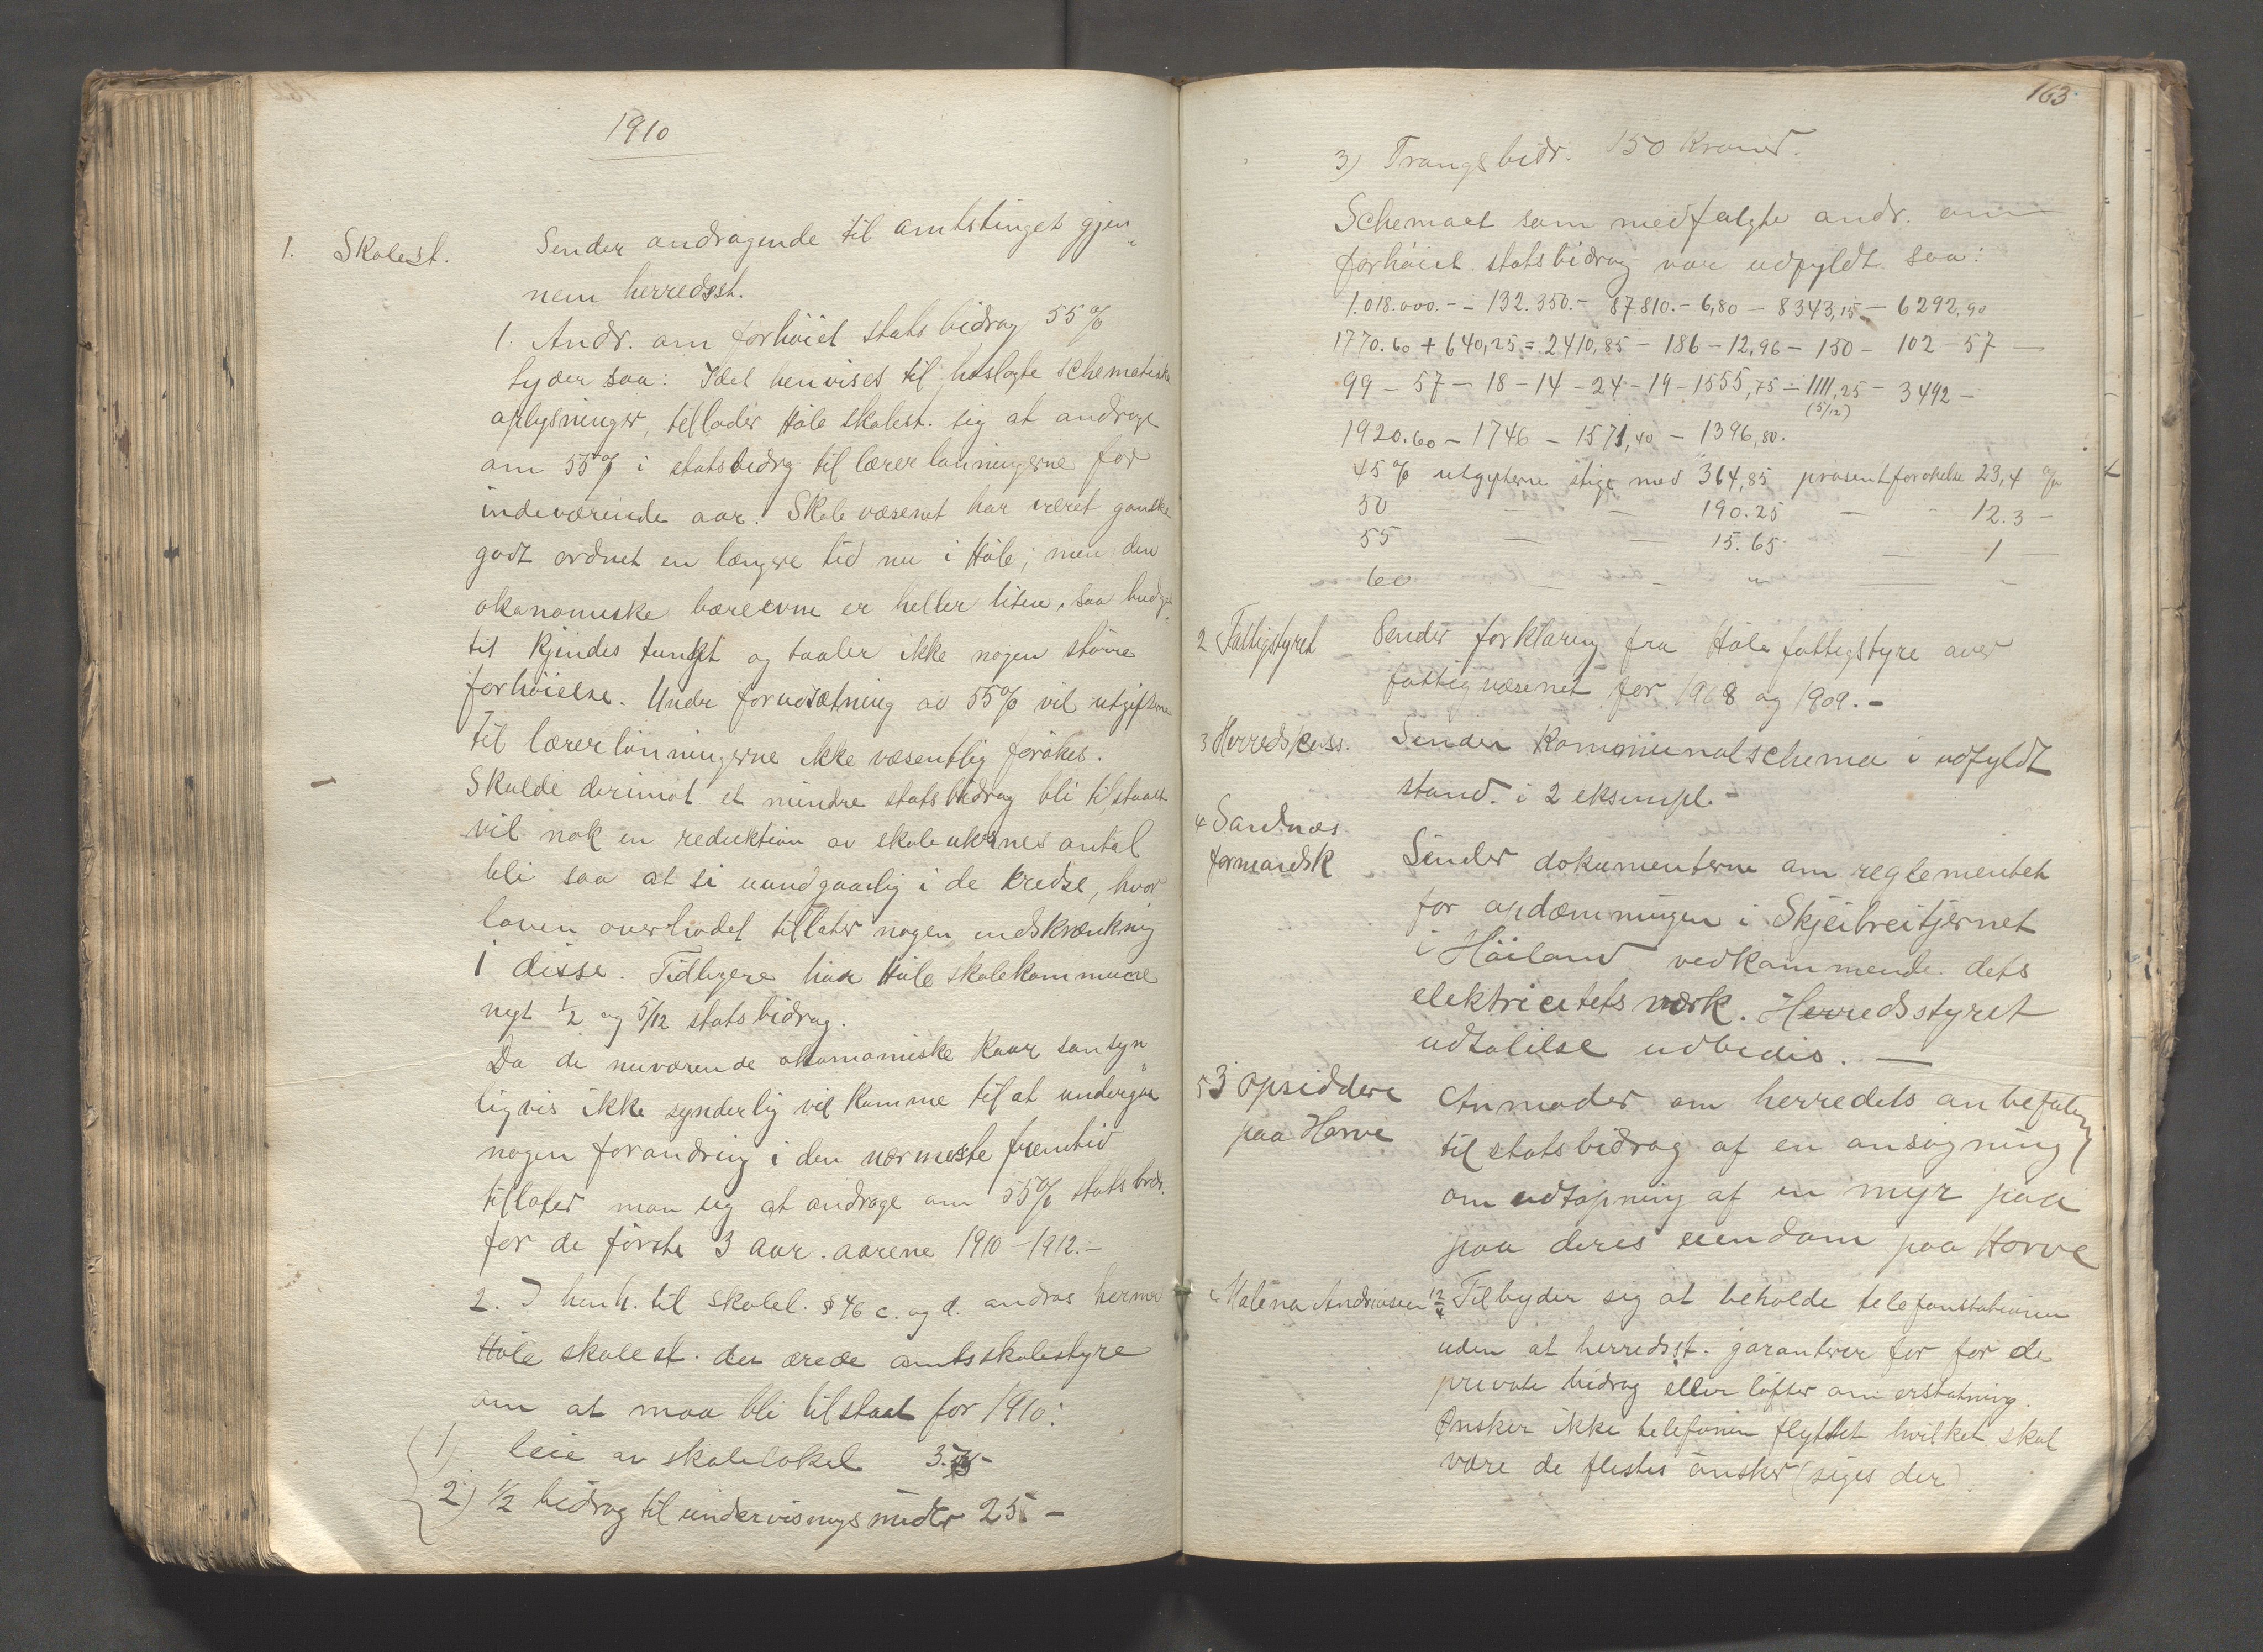 1910
1. Skolest. Sender andragende til amtstinget gjen„
nem herredsst.
1. Andr. om forhöiet statsbidrag 55%
lyder saa: Idet henvises til hoslagte schematiske
oplysninger, tillader Höle skolest. sig at andrage
om 55% i statsbidrg til lærerlønningerne for
indeværende aar. Skolevæsenet har været ganske
godt ordnet en længere tid nu i Höle; men den
økonomiske bæreevne er heller liten, saa budget„
tit kjendes tungt og taaler ikke nogen större
forhöielse. Under forudsætning av 55% vil utgifterne
til lærerlönningerne ikke væsentlig forökes.
Skulde derimot et mindre statsbidrag bli tilstaaet
vil nok en reduktion av skoleukernes antal
bli saa at si uundgaaelig i de kredse, hvor
loven overhodet tillater nogen indskrænkning
i disse. Tidligere har Höle skolekommune
nyt 1/2 og 5/12 statsbidrag.
Da de nuværende økonomiske kaar sansyn„
ligvis ikke synderlig vil komme til at undergaa
nogen forandring i den nærmeste fremtid
tillater man sig at andrage om 55% statsbidr.
for de förste 3 aar. aarene 1910–1912.–
2. I henh. til skolel. § 46 c. og d. andras herved
Höle skolest. det ærede amtsskolestyre
om at maa bli tilstaat for 1910:
1) leie av skolelokal
2) 1/2 bidrag til undervisnings midler 25.–
163
3) Trangsbidr. 150 Kroner.
Schemaet som medfølgte andr. om
forhöiet statsbidrag var udfyldt saa:
1.018.000.– – 132.350.– 87.810.– 6,80 – 8343,15 – 6292,90
1770.60 + 640,25 = 2410,85 – 186 – 12,96 – 150 – 102 – 57 –
99 – 57 – 18 – 14 – 24 – 19 – 1555,75 – 1111,25 – 3492 –
(5/12)
1920.60 – 1746 – 1571,40 – 1396,80.
45% utgifterne stige med 364,85 prosentforøkelse 23,4 %
50 — — 190.25 — - 12.3 –
55 — — 15.65 — 1 —
60 — – „ — „
2 Fattigstyret Sender forklaring fra Höle fattigstyre over
fattigvæsenet for 1908 og 1909.–
3 Herredskass. Sender Kommunalschema i udfyldt
stand. i 2 eksempl.–
4 Sandnes
formandsk Sender dokumenterne om reglementet
for opdæmningen i Skjeibreitjernet
i Höiland vedkommende dets
elektricitetsværk. Herredsstyret
udtalelse udbedes. —
5 3 opsiddere
paa Horve Anmoder om herredets anbefaling
til statsbidrag af en ansögning
om udtapning af en myr paa
paa deres eiendom paa Horve
6 Malena Andreassen 12/4 Tilbyder sig at beholde telefonstationen
uden at herredsst. garanterer for for de
private bidrag eller löfter om erstatning.
Ønsker ikke telefonen flyttet hvilket skal
være de flestes önsker (siges der).